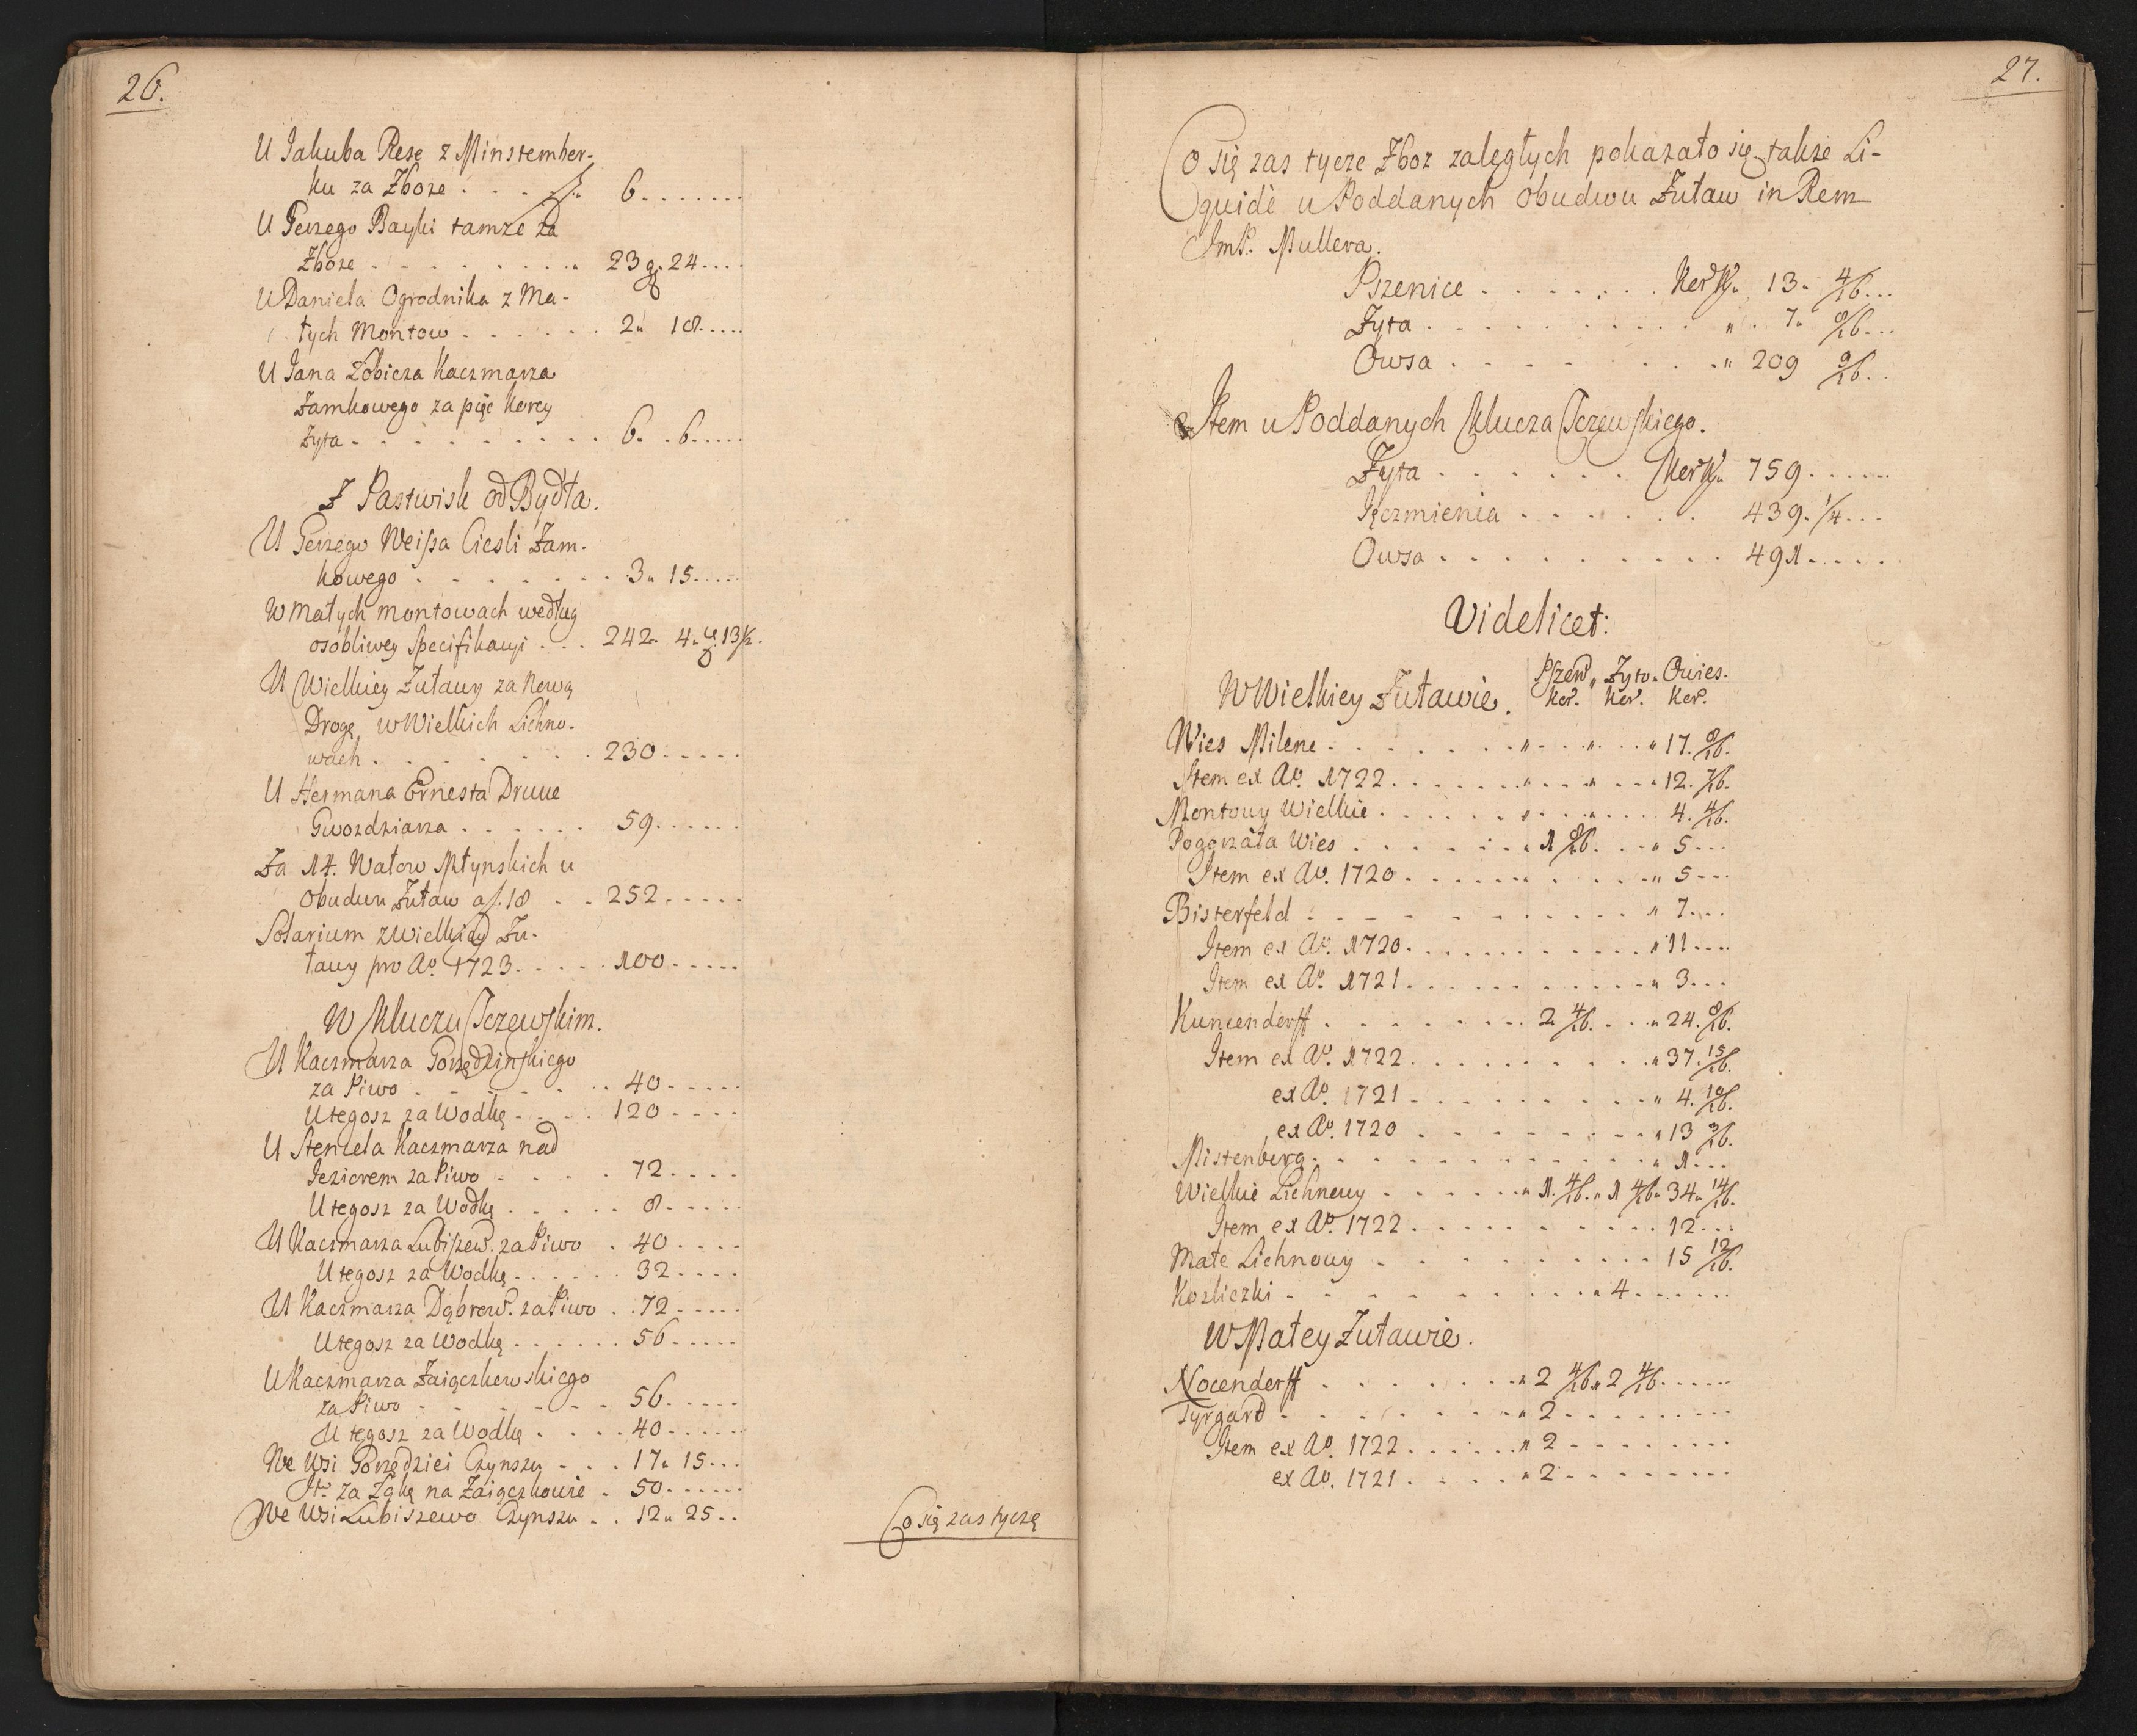 26.
U Jakuba Rese z Minstember-
ku za Zboze . . . fl. 6 . . . . . . .
U Gerzego Bayki tamze za
Zboze . . . . . . . . . 23 g. 24 . . . .
U Daniela Ogrodnika z Ma-
łych Montow . . . . . . 2 „ 18 . . . .
U Jana Zobicza Kaczmarza
Zamkowego za pięc Korcy
Zyta . . . . . . . . . . 6 . . 6 . . . . .
Z Pastwisk od Bydła.
U Gerzego Weissa Ciesli Zam-
kowego . . . . . . . . 3 „ 15 . . . . .
W Małych Montowach według
osobliwey Specifikacyi . . . 242 . 4 „ 13½ .
U Wielkiey Zuławy za Nową
Drogę w Wielkich Lichno-
wach . . . . . . . . 230 . . . . .
U Hermana Ernesta Druue
Gwozdziarza . . . . . . 59 . . . . . .
Za 14. Wałow Młynskich u
obudwu Zuław a f. 18 . . 252 . . . . .
Solarium z Wielkiey Zu-
ławy pro Aō. 1723 . . . . . 100 . . . . .
W Kluczu Tczewskim.
U Kaczmarza Gorzędzinskiego
za Piwo . . . . . . . . 40 . . . . .
U tegosz za Wodkę . . . . 120 . . . .
U Stencla Kaczmarza nad
Jeziorem za Piwo . . . . . 72 . . . .
U tegosz za Wodkę . . . . . 8 . . . . .
U Kaczmarza Lubiszew. za Piwo . 40 . . . .
U tegosz za Wodkę . . . . . . 32 . . . .
U Kaczmarza Dąbrow. za Piwo . . 72 . . . . .
U tegosz za Wodkę . . . . . . 56 . . . . .
U Kaczmarza Zaiączkowskiego
za Piwo . . . . . . . . 56 . . . . .
U tegosz za Wodkę . . . . 40 . . . . .
We Wsi Gorzędziei Czynszu . . . 17 „ 15 . . .
It: za Łąkę na Zaiączkowie . 50 . . . . . .
We Wsi Lubiszewo Czynszu . . 12 „ 25 . .
Co się zas tyczę
27.
Co się zas tycze Zboz zaległych pokazało się takze Li-
quidè u Poddanych obudwu Zuław in Rem
ImP. Mullera.
Pszenice . . . . . . . Kor. 13 „ 4/16 . . .
Zyta . . . . . . . . . . „ . 7 „ 8/16 . . .
Owsa . . . . . . . . . „ 209 9/16 . .
Item u Poddanych Klucza Tczewskiego.
Zyta . . . . . . Kor. 759 . . . . . .
Jęczmienia . . . . . . 439 . 1/4 . . .
Owsa . . . . . . . . . . 491 . . . . .
Videlicet:
W Wielkiey Zuławie. Pszen. „ Zyto „ Owies.
Kor. Kor. Kor.
Wies Milene . . . . . . . „ . . „ . . . „ 17. 8/16.
Item ex Aō. 1722 . . . . . . . „ . . . „ . . . „ 12. 7/16.
Montowy Wielkie . . . . . . „ . . . . „ . . . . 4. 4/16.
Pogorzała Wies . . . . . . „ 1 8/16 . . . „ 5 . . .
Item ex Aō. 1720 . . . . . . „ . . . . . „ 5 . . .
Bisterfeld . . . . . . . . . . . . „ 7 . . .
Item ex Aō. 1720 . . . . . . . . . . . „ 11 . . . .
Item ex Aō. 1721 . . . . . . . . . . . „ 3 . . .
Kuncenderff . . . . . . . . 2 4/16 . . . „ 24. 8/16.
Item ex Aō. 1722 . . . . . . . . . . „ 37. 15/16.
ex Aō. 1721 . . . . . . . . . . „ 4. 10/16.
ex Aō. 1720 . . . . . . . . . „ 13 3/16.
Mistenberg . . . . . . . . . . . . . „ 1 . . .
Wielkie Lichnowy . . . . . . „ 1. 4/16. „ 1 4/16 „ 34 „ 14/16.
Item ex Aō. 1722 . . . . . . . . . . 12 . . .
Małe Lichnowy . . . . . . . . . . 15 12/16.
Kozliczki . . . . . . . . . . „ 4 . . . . . .
W Małey Zuławie.
Nocenderff . . . . . . . „ 2 4/16 „ 2 4/16 . . . . .
Tyrgard . . . . . . . . „ 2 . . . . . . . . .
Item ex Aō. 1722 . . . . . . „ 2 . . . . . . . .
ex Aō. 1721 . . . . „ 2 . . . . . . . . .